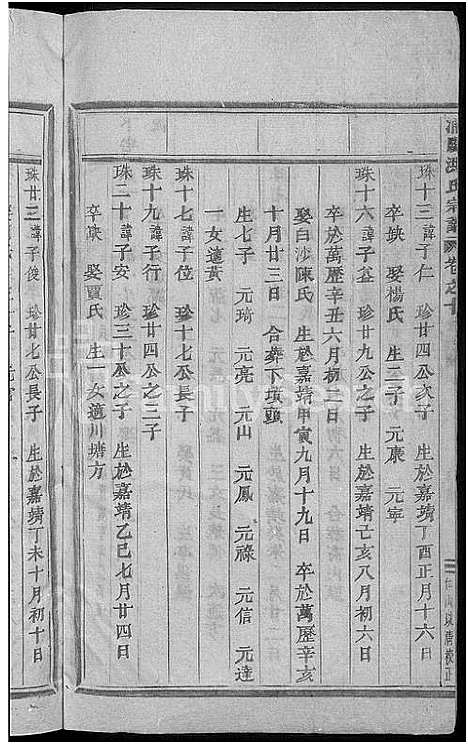 氏宗譜 卷之十
珠十三諱子仁 珍廿四公次子 生於嘉靖丁酉正月十六日
卒缺 娶楊氏 生二子 元康 元寧
珠十六諱子益 珍廿九公之子 生於嘉靖己亥八月初六日
卒於萬歷辛丑六月初三日
娶白沙陳氏 生於嘉靖甲寅九月十九日 卒於萬歷辛亥
十月廿三日 合葬下墳頭
生七子 元琦 元亮 元山 元鳳 元祿 元信 元達
一女適黃
珠十七諱子位 珍十七公長子
珠十九諱子行 珍廿四公之三子
珠二十諱子安 珍三十公之子 生於嘉靖乙巳七月廿四日
卒缺 娶賈氏 生一女適川塘方
珠廿三諱子俊 珍廿七公長子 生於嘉靖丁未十月初十日